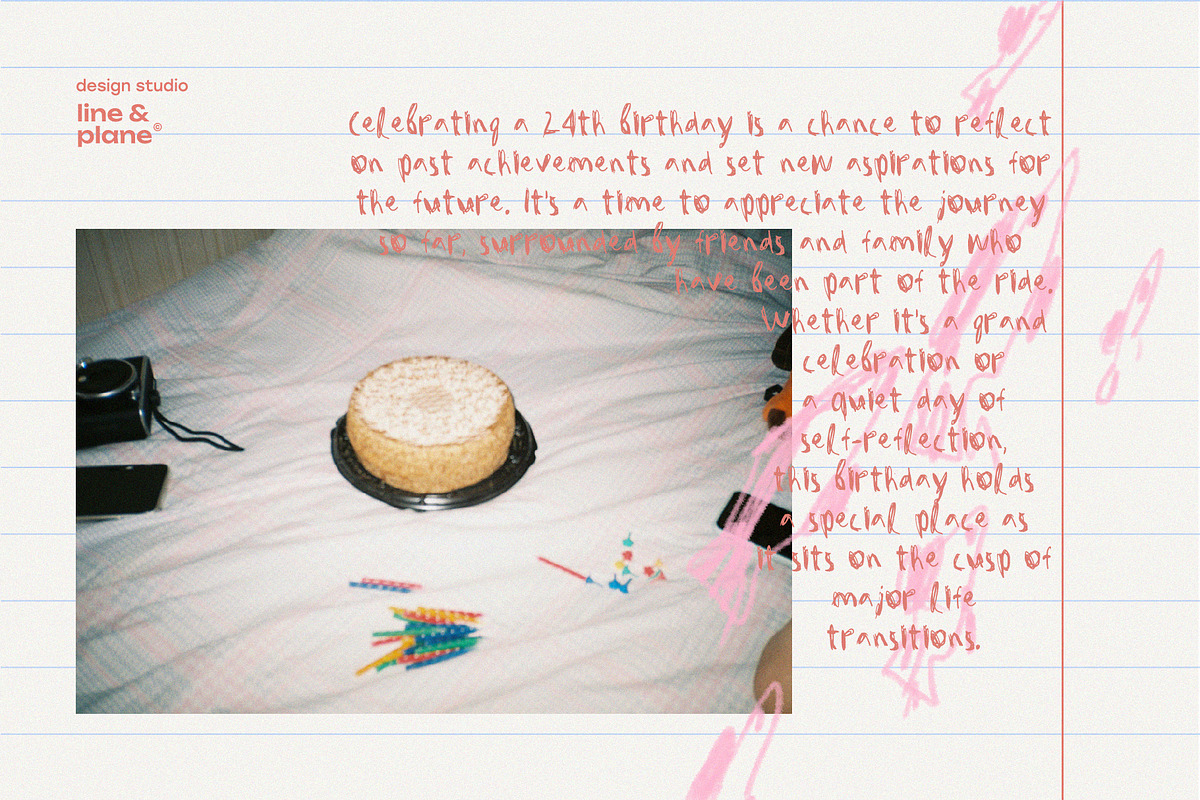 design studio
line &
plane©
Celebrating a 24th birthday is a chance to reflect
on past achievements and set new aspirations for
the future. It's a time to appreciate the journey
so far, surrounded by friends and family who
have been part of the ride.
Whether it's a grand
celebration or
a quiet day of
self-reflection,
this birthday holds
a special place as
it sits on the cusp of
major life
transitions.